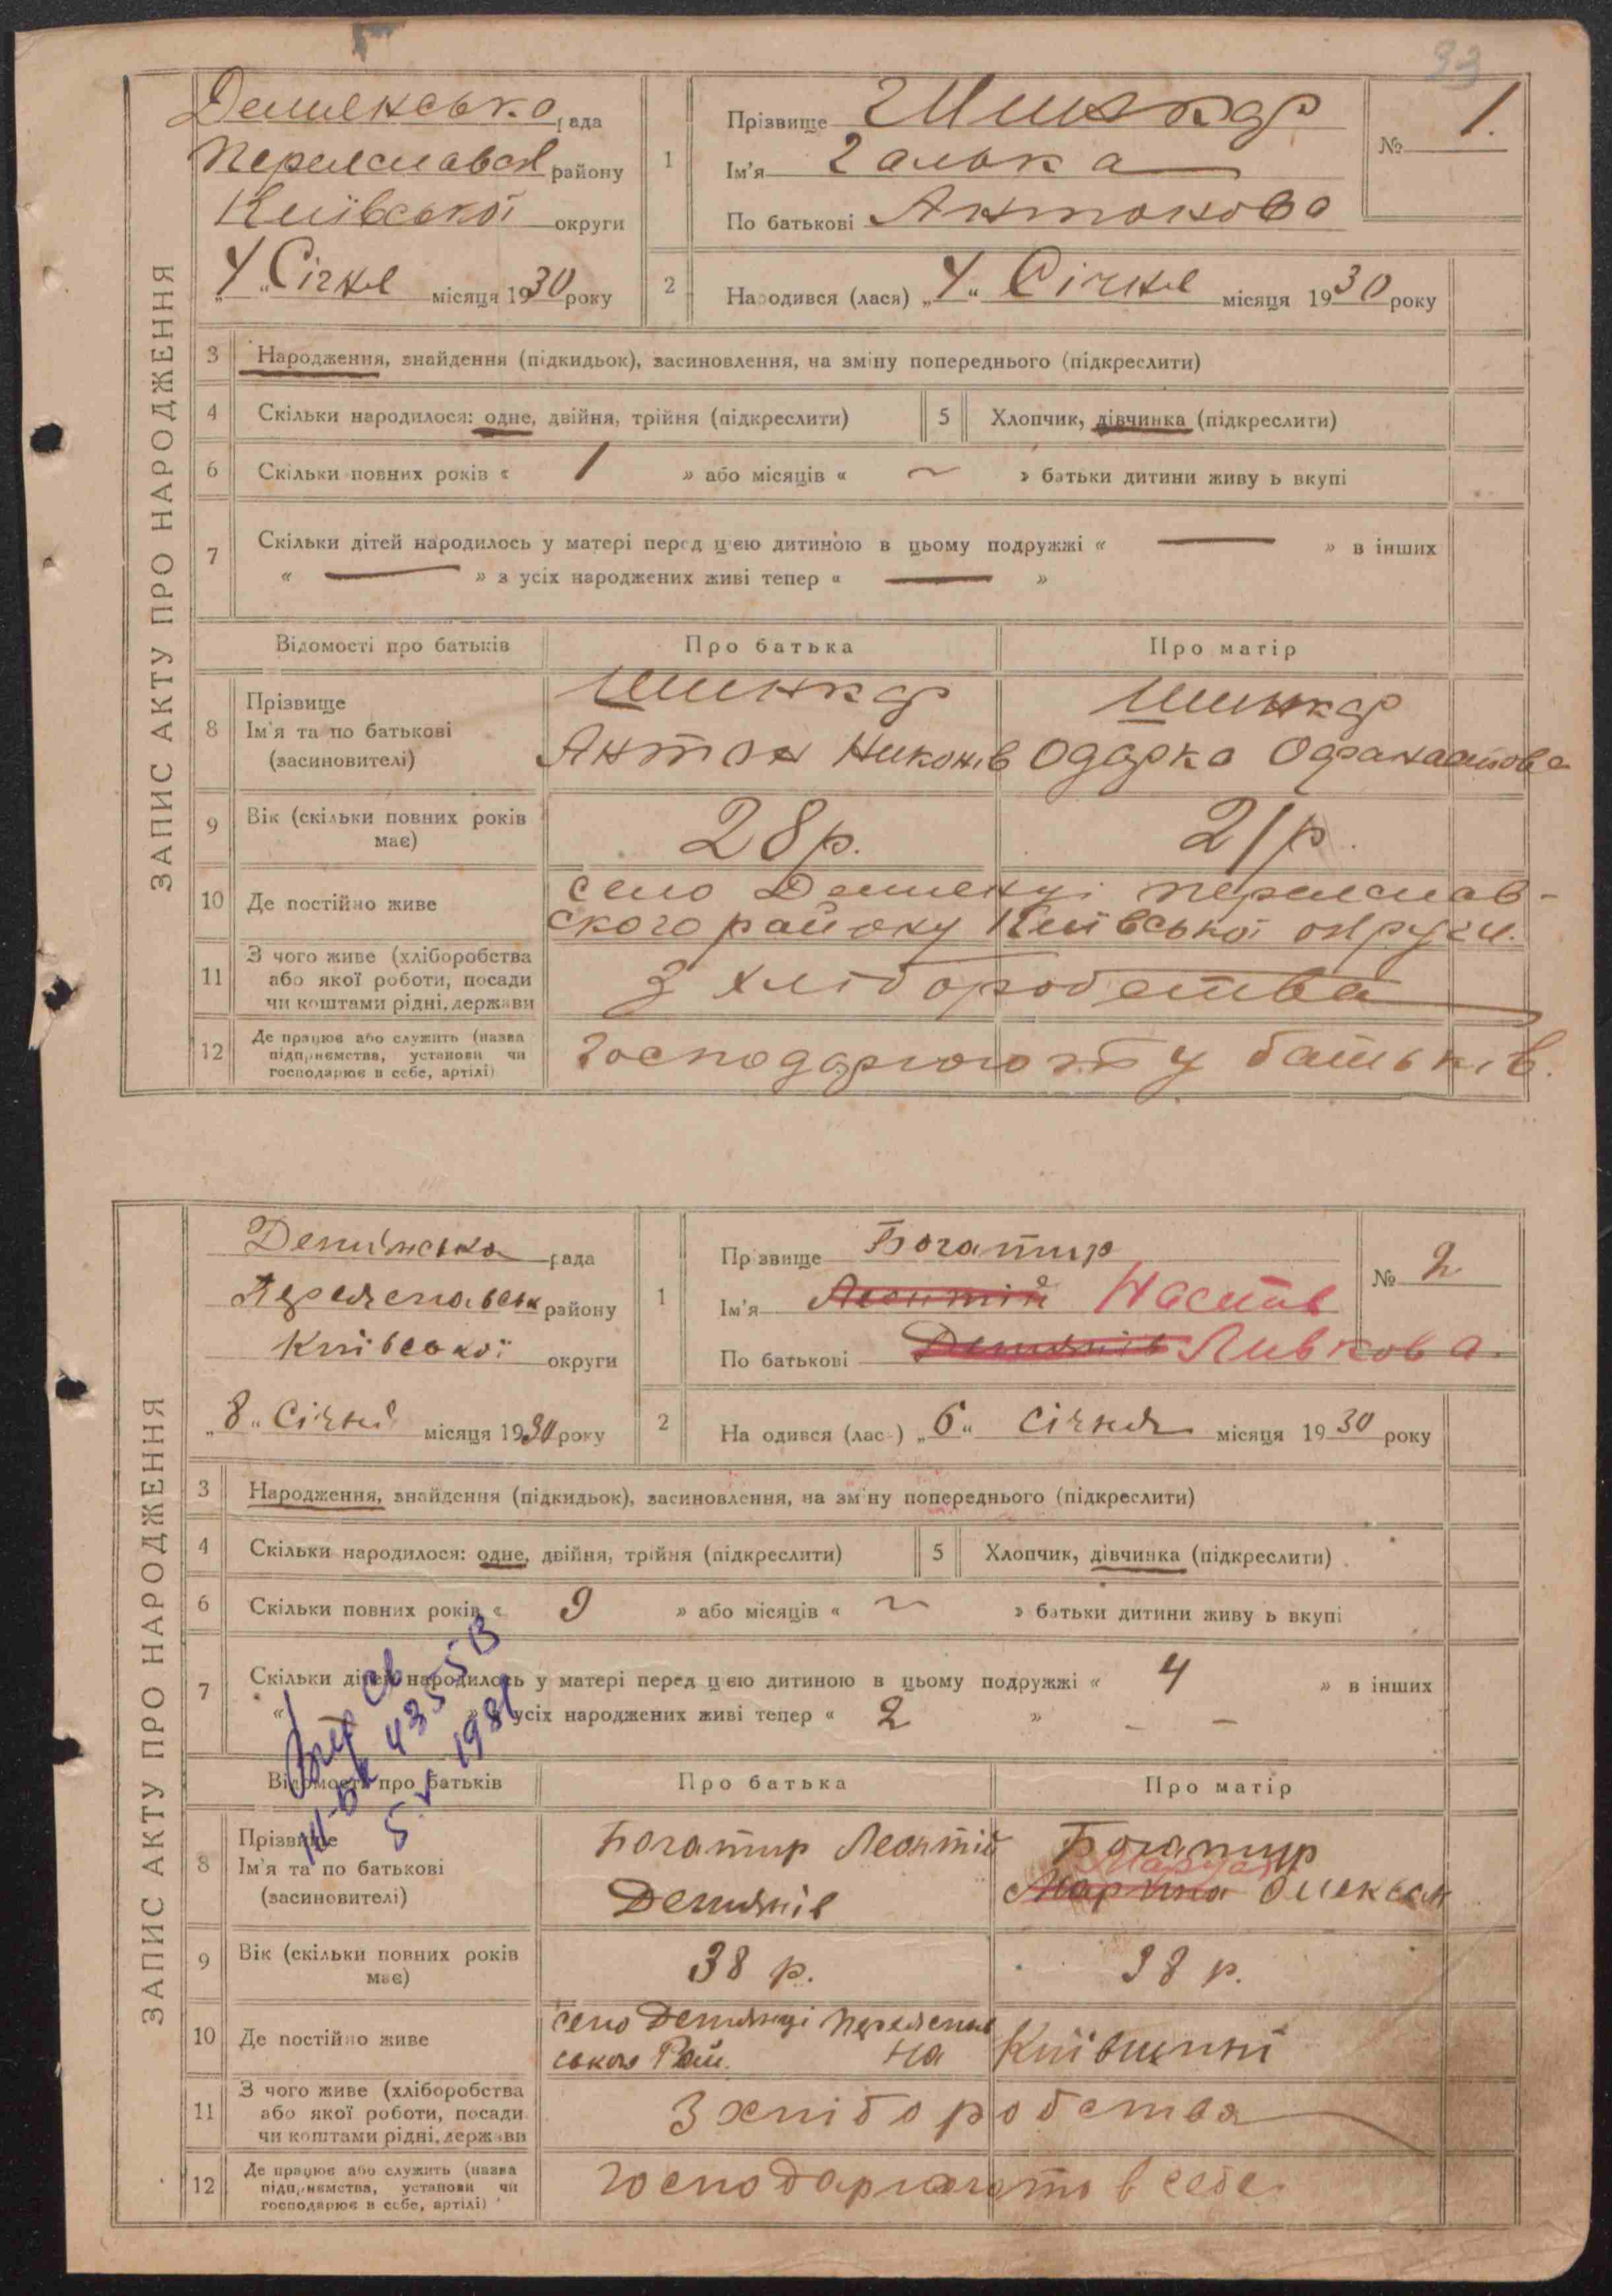 93
ЗАПИС АКТУ ПРО НАРОДЖЕННЯ
Демʼянська рада
Переяславськ району
Київської округи
„4“ Січня місяця 1930 року
1
Прізвище Шинкар
Ім'я Галька
По батькові Антонова
№ 1.
2
Народився (лася) „4“ Січня місяця 1930 року
3 Народження, знайдення (підкидьок), засиновлення, на зміну попереднього (підкреслити)
4 Скільки народилося: одне, двійня, трійня (підкреслити)
5 Хлопчик, дівчинка (підкреслити)
6 Скільки повних років « 1 » або місяців « ~ » батьки дитини живу ь вкупі
7 Скільки дітей народилось у матері перед цією дитиною в цьому подружжі « — » в інших
« — » з усіх народжених живі тепер « — »
Відомості про батьків Про батька Про матір
8 Прізвище
Ім'я та по батькові
(засиновителі)
Шинкар
Антон Никонів
Шинкар
Одарка
9 Вік (скільки повних років має)
28 р. 21 р.
10 Де постійно живе
село Демʼянці Переяслав-
ского району Київської округи.
11 З чого живе (хліборобства
або якої роботи, посади
чи коштами рідні, держави
З хліборобства
12 Де працює або служить (назва
підприємства, установи чи
господарює в себе, артілі)
Господарюють у батьків.
ЗАПИС АКТУ ПРО НАРОДЖЕННЯ
Демʼянська рада
Переяславськ району
Київської округи
„8“ Січня місяця 1930 року
1
Прізвище Богатир
Ім'я Леонтій Настя
По батькові Демʼянів Ливкова.
№ 2
2
На одився (лас ) „6“ Січня місяця 1930 року
3 Народження, знайдення (підкидьок), засиновлення, на зміну попереднього (підкреслити)
4 Скільки народилося: одне, двійня, трійня (підкреслити)
5 Хлопчик, дівчинка (підкреслити)
6 Скільки повних років « 9 » або місяців « ~ » батьки дитини живу ь вкупі
7 Скільки дітей народилось у матері перед цією дитиною в цьому подружжі « 4 » в інших
« » з усіх народжених живі тепер « 2 » – –
5 V 1981
Відомості про батьків Про батька Про матір
8 Прізвище
Ім'я та по батькові
(засиновителі)
Богатир Леонтій
Демʼянів
Богатир
Марина Олексан
9 Вік (скільки повних років має)
38 р. 38 р.
10 Де постійно живе
село Демʼянці Переяслав
ського Рай. На Київщині
11 З чого живе (хліборобства
або якої роботи, посади
чи коштами рідні, держави
З хліборобства
12 Де працює або служить (назва
підприємства, установи чи
господарює в себе, артілі)
Господарюють в себе.